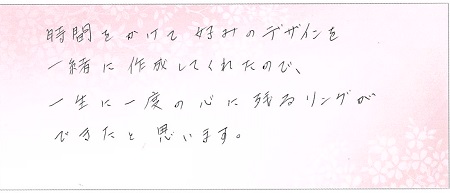 時間をかけて好みのデザインを
一緒に作成してくれたので、
一生に一度の心に残るリングが
できたと思います。